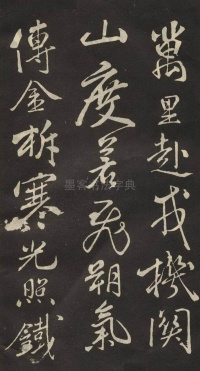 萬里赴戎機關
山度若飛朔氣
傳金柝寒光照鐵
墨客書法字典